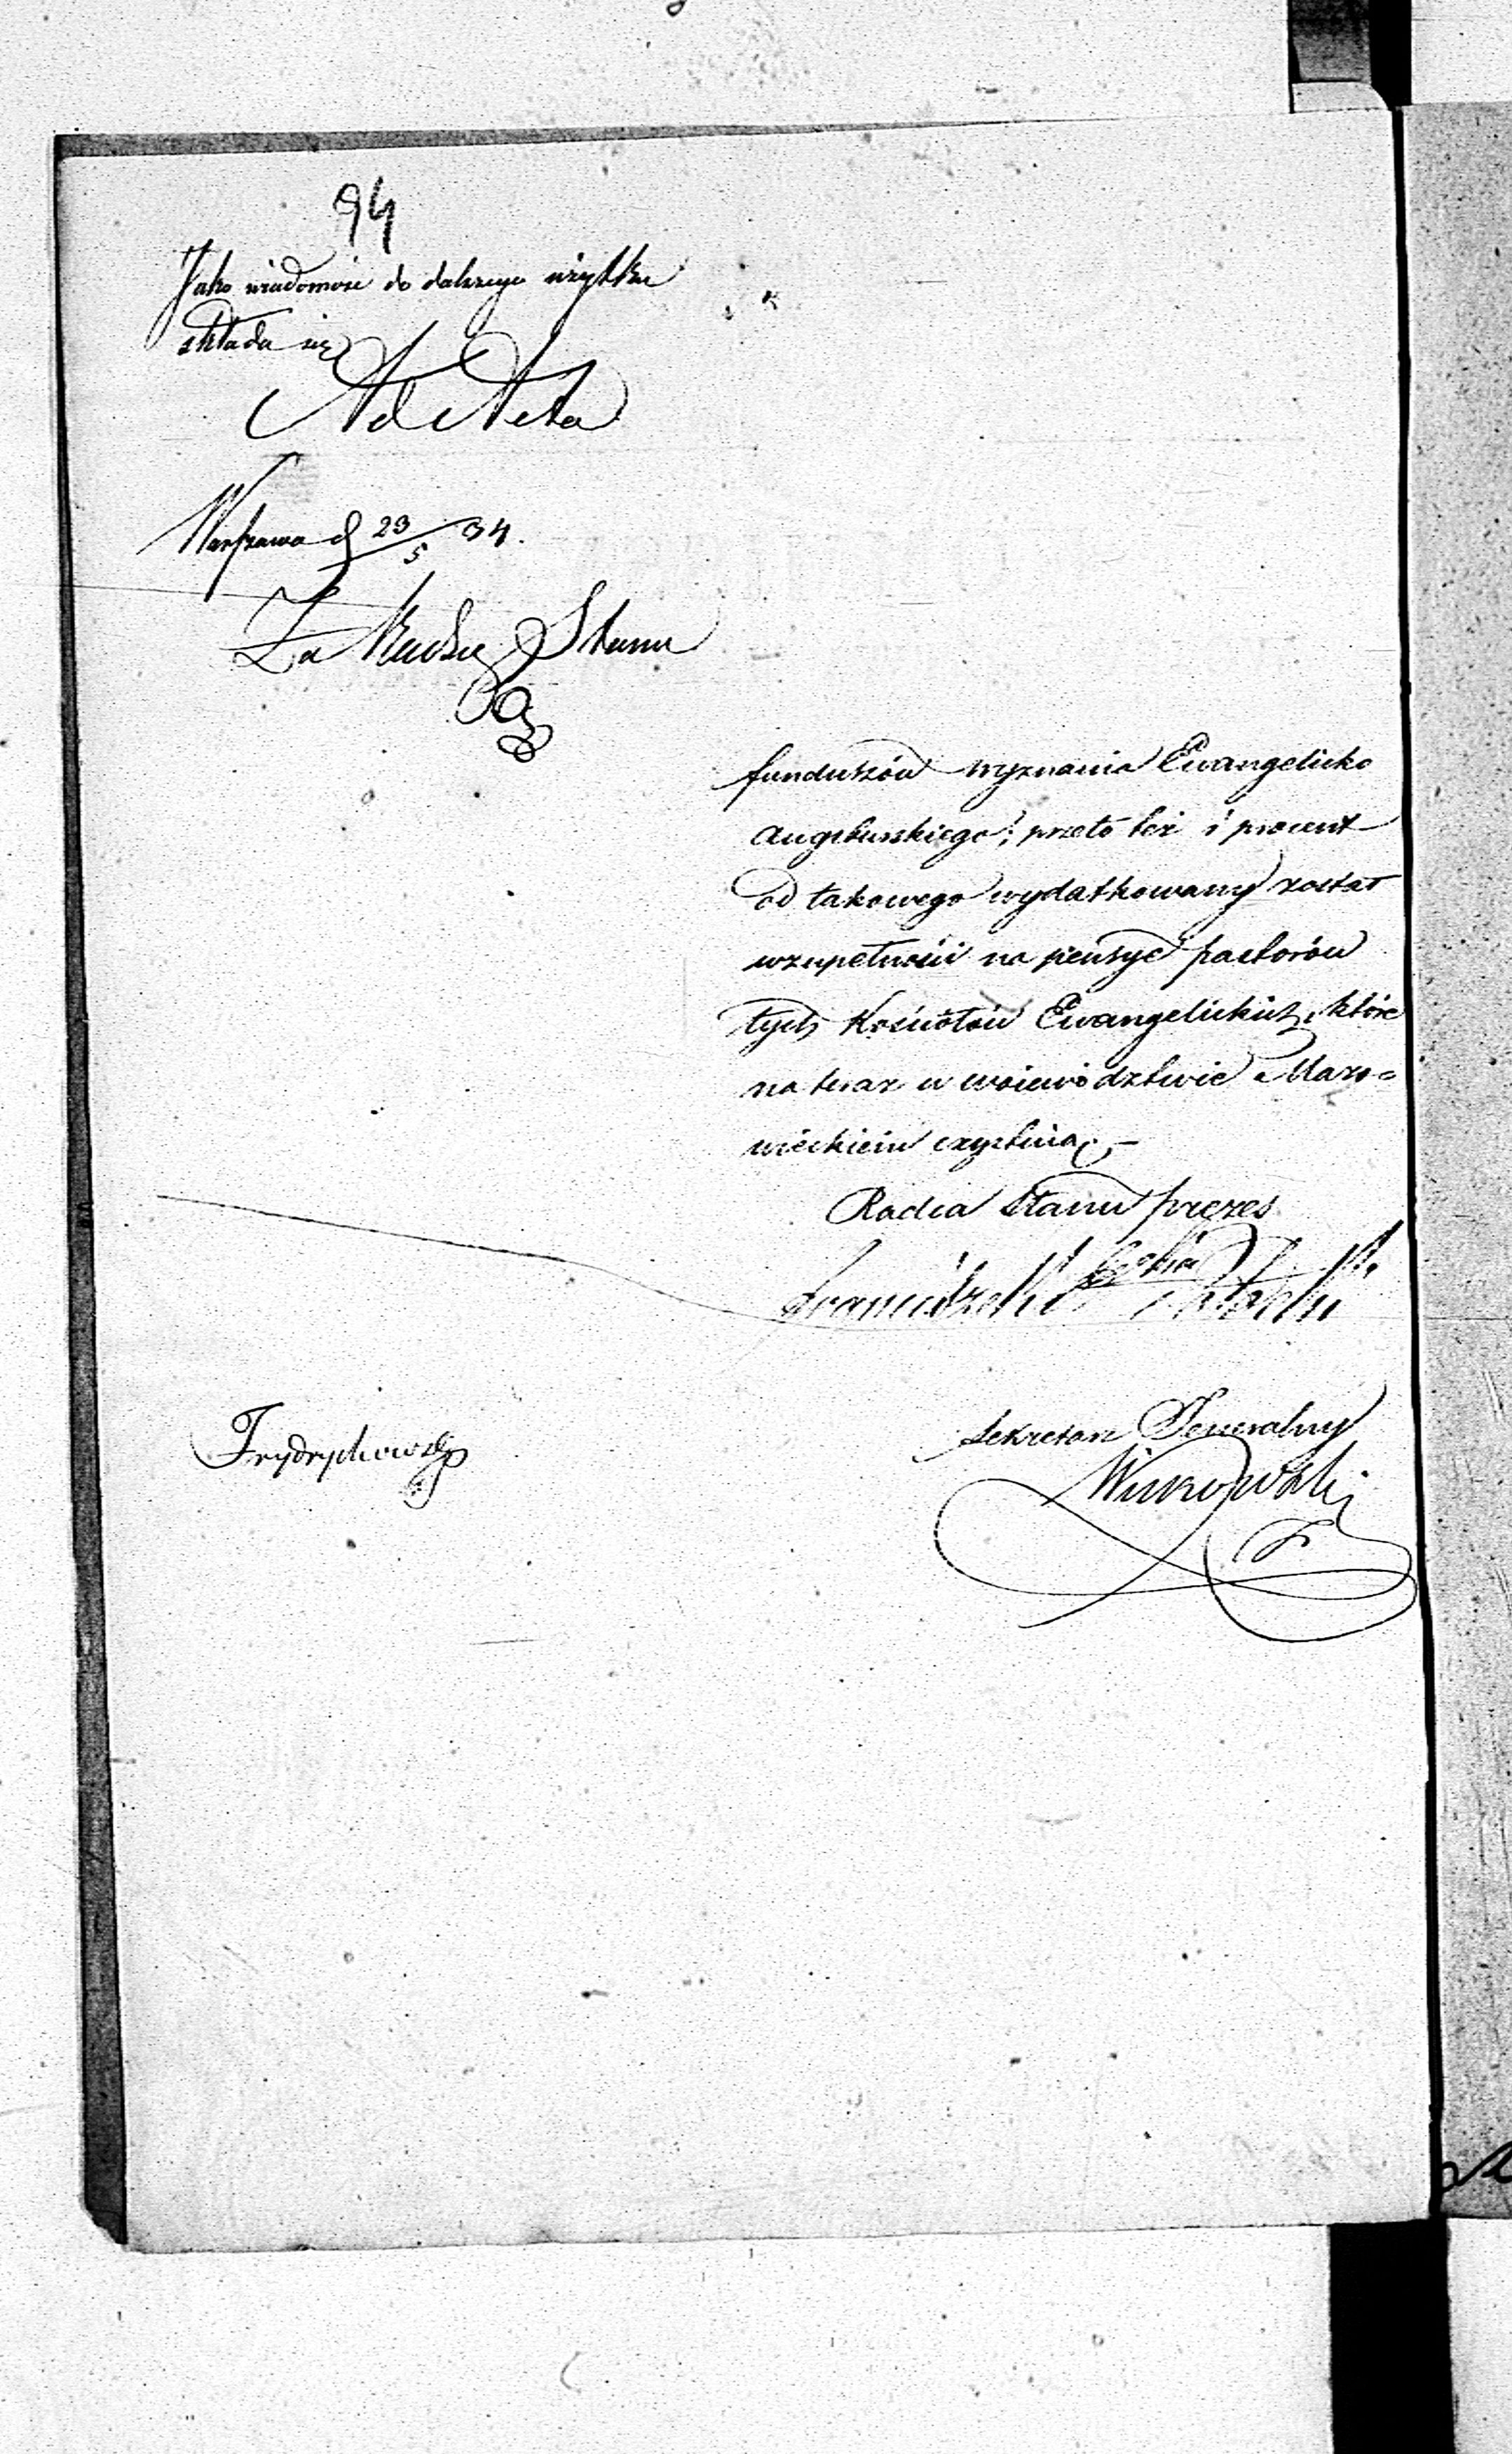 94
Jako wiadomość do dalszego użytku
składa się
Ad Acta
Warszawa d 23/5 34.
Za Radzcę Stanu
funduszów wyznania Ewangelicko
Augsburskiego; przeto też i procent
od takowego wydatkowany został
wzupełności na pensye pastorów
tych Kościołów Ewangelickich, które
na teraz w woiewództwie Mazo=
wieckiem czystnią. –
Radca Stanu prezes
Franciszek Potocki
Sekretarz Jeneralny
Frydrychowski